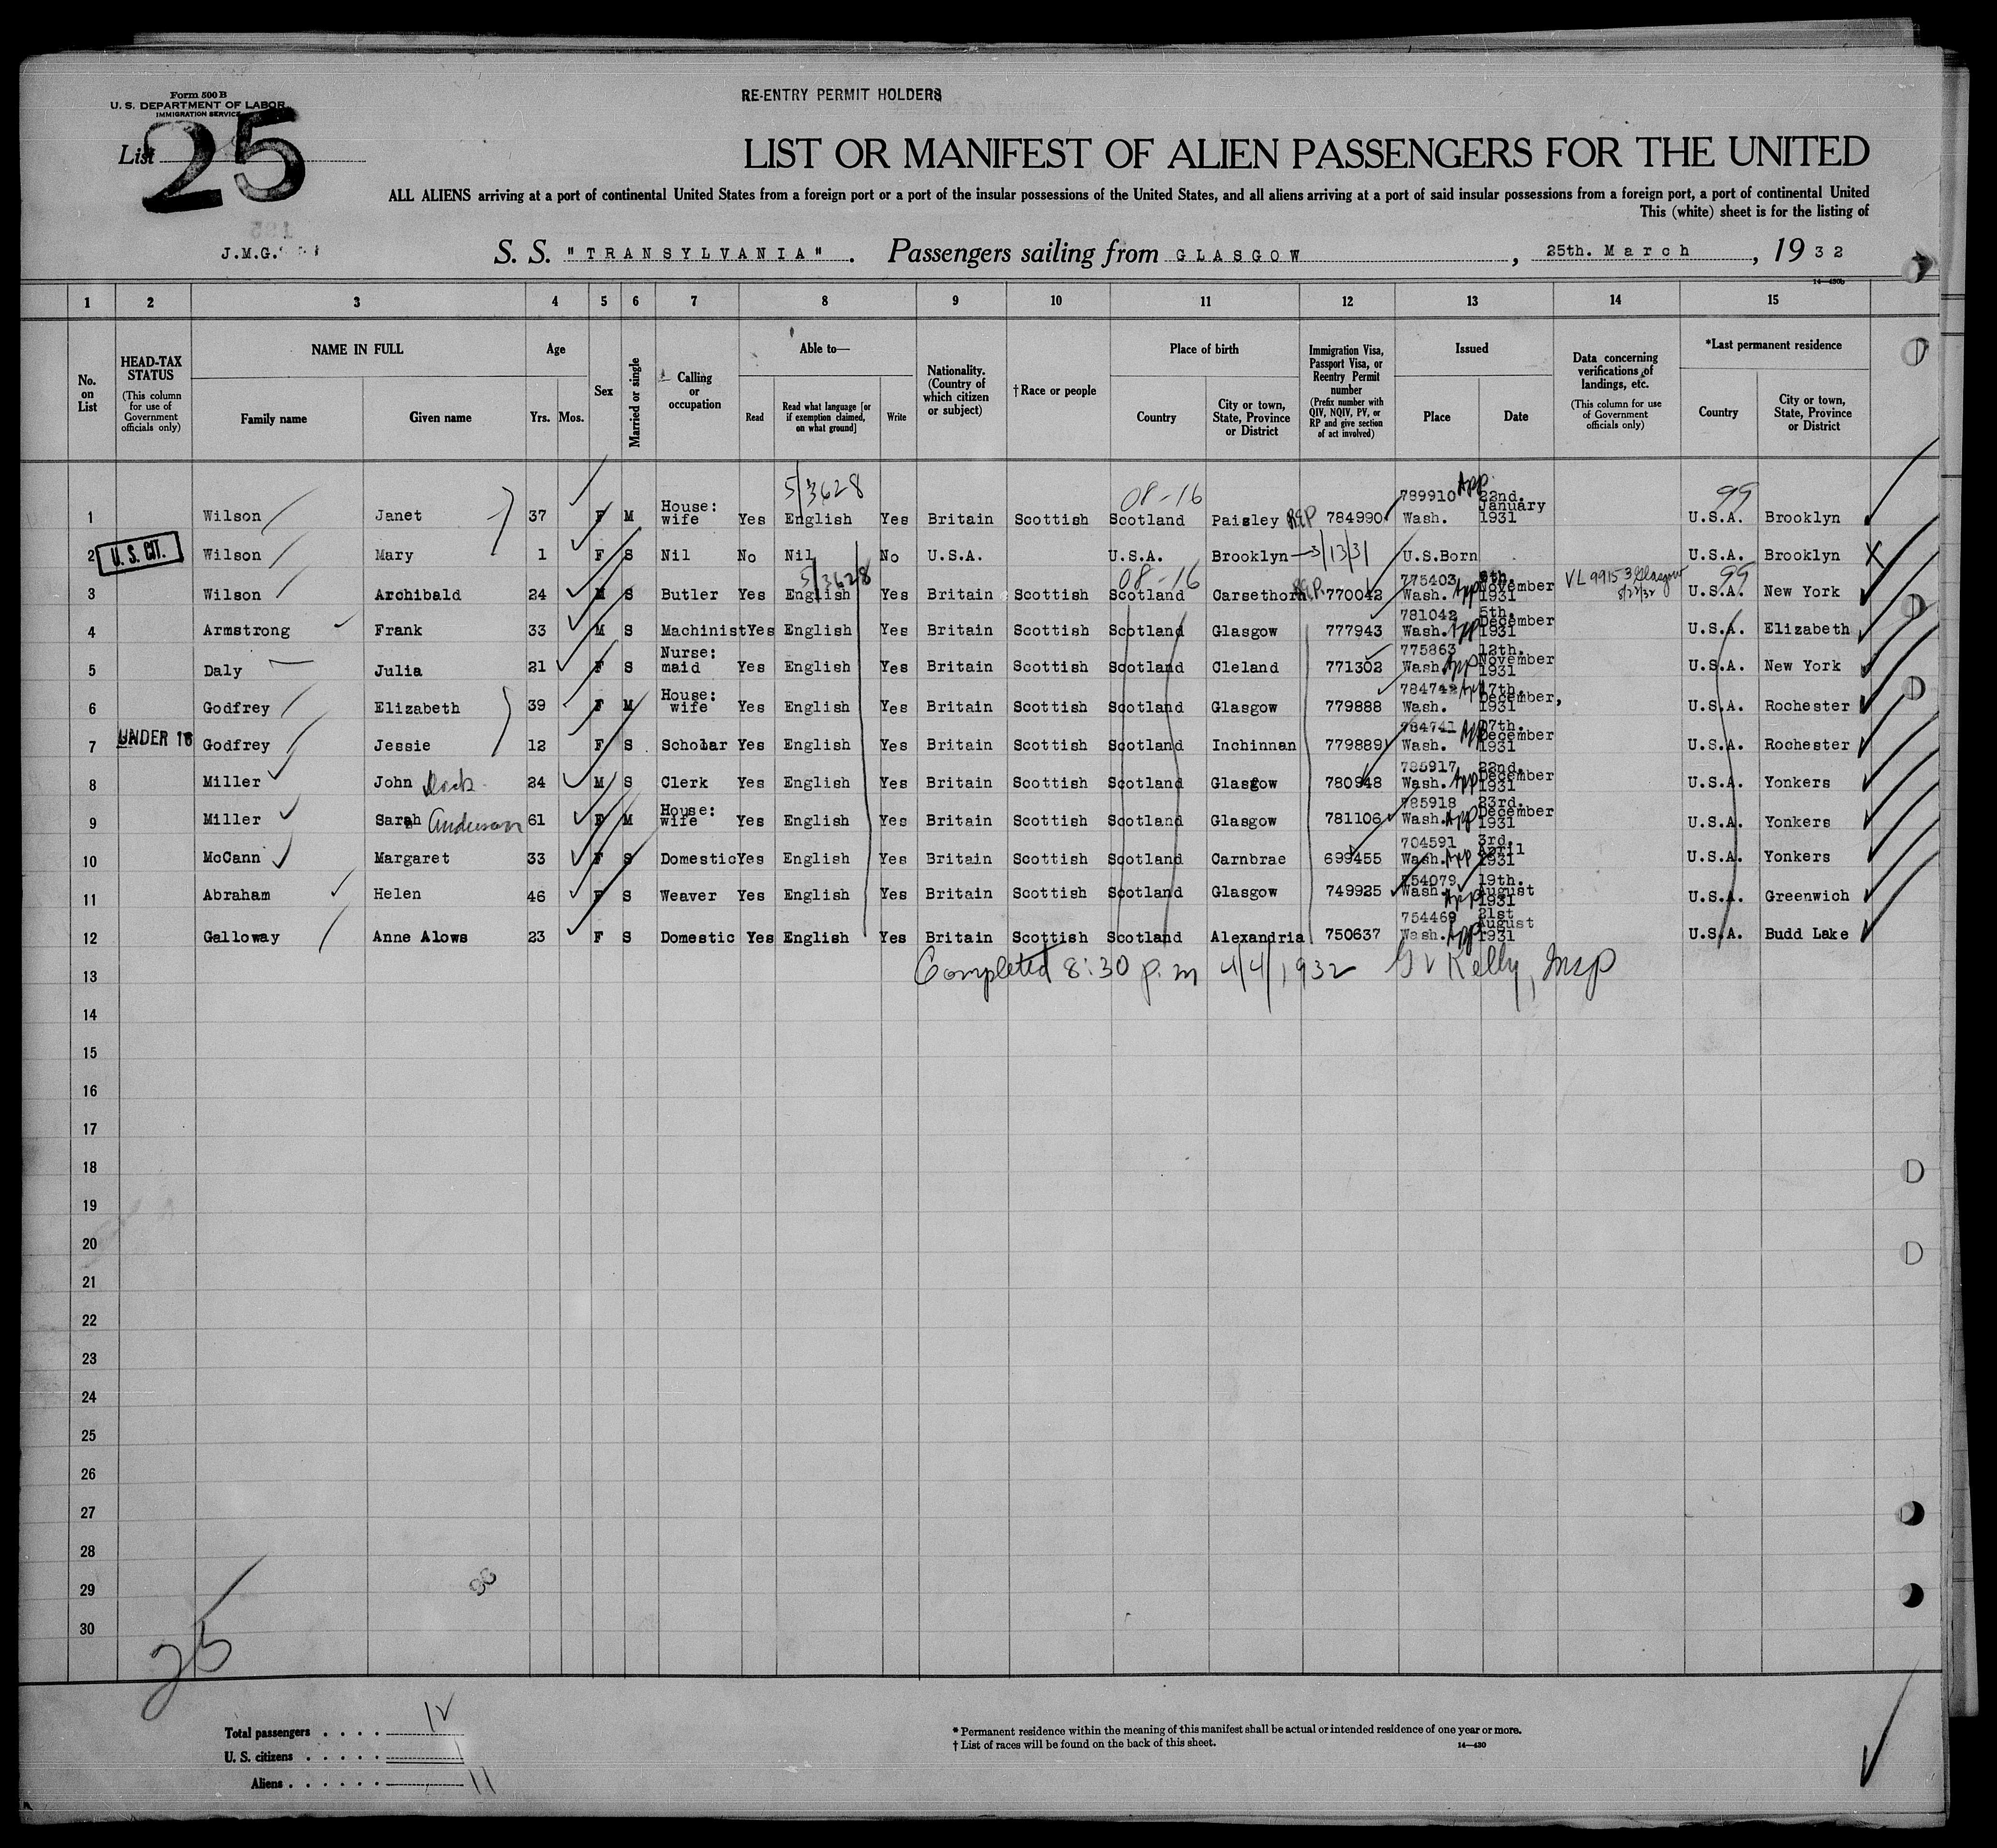 Form 500 B
U. S. DEPARTMENT OF LABOR
IMMIGRATION SERVICE
RE-ENTRY PERMIT HOLDERS
List 25
LIST OR MANIFEST OF ALIEN PASSENGERS FOR THE UNITED
ALL ALIENS arriving at a port of continental United States from a foreign port or a port of the insular possessions of the United States, and all aliens arriving at a port of said insular possessions from a foreign port, a port of continental United
This (white) sheet is for the listing of
J.M.G. S. S. "TRANSYLVANIA". Passengers sailing from GLASGOW, 25th. March, 1932
1 2 3 4 5 6 7 8 9 10 11 12 13 14 15
No. on List
HEAD-TAX STATUS (This column for use of Government officials only)
NAME IN FULL Family name Given name
Age Yrs. Mos.
Sex
Married or single
Calling or occupation
Able to— Read Read what language [or if exemption claimed, on what ground] Write
Nationality. (Country of which citizen or subject)
†Race or people
Place of birth Country City or town, State, Province or District
Immigration Visa, Passport Visa, or Reentry Permit number (Prefix number with QIV, NQIV, PV, or RP and give section of act involved)
Issued Place Date
Data concerning verifications of landings, etc. (This column for use of Government officials only)
*Last permanent residence Country City or town, State, Province or District
5/3628 08-16 99
1 Wilson Janet 37 F M House: wife Yes English Yes Britain Scottish Scotland Paisley REP 784990 789910 App Wash. 22nd. January 1931 U.S.A. Brooklyn
2 U.S. CIT. Wilson Mary 1 F S Nil No Nil No U.S.A. U.S.A. Brooklyn 3/13/31 U.S.Born U.S.A. Brooklyn X
5/3628 08-16 99
3 Wilson Archibald 24 M S Butler Yes English Yes Britain Scottish Scotland Carsethorn 770042 775403 Wash. App November 1931 VL 99153 Glasgow U.S.A. New York
4 Armstrong Frank 33 M S Machinist Yes English Yes Britain Scottish Scotland Glasgow 777943 781042 Wash. App 5th. December 1931 U.S.A. Elizabeth
5 Daly Julia 21 F S Nurse: maid Yes English Yes Britain Scottish Scotland Cleland 771302 775863 Wash. App 12th. November 1931 U.S.A. New York
6 Godfrey Elizabeth 39 F M House: wife Yes English Yes Britain Scottish Scotland Glasgow 779888 784742 App Wash. 17th. December, 1931 U.S.A. Rochester
7 UNDER 16 Godfrey Jessie 12 F S Scholar Yes English Yes Britain Scottish Scotland Inchinnan 779889 784741 Wash. App 17th. December 1931 U.S.A. Rochester
8 Miller John 24 M S Clerk Yes English Yes Britain Scottish Scotland Glasgow 780948 785917 Wash. App 22nd. December 1931 U.S.A. Yonkers
9 Miller Sarah Anderson 61 F M House: wife Yes English Yes Britain Scottish Scotland Glasgow 781106 785918 Wash. App 23rd. December 1931 U.S.A. Yonkers
10 McCann Margaret 33 F S Domestic Yes English Yes Britain Scottish Scotland Carnbrae 699455 704591 Wash. App 3rd. April 1931 U.S.A. Yonkers
11 Abraham Helen 46 F S Weaver Yes English Yes Britain Scottish Scotland Glasgow 749925 754079 Wash. App 19th. August 1931 U.S.A. Greenwich
12 Galloway Anne Alows 23 F S Domestic Yes English Yes Britain Scottish Scotland Alexandria 750637 754469 Wash. App 21st August 1931 U.S.A. Budd Lake
13 Completed 8:30 p.m 4/4/1932 G V Kelly, Insp
14
15
16
17
18
19
20
21
22
23
24
25
26
27
28
29
30
25
Total passengers . . . . 12
U. S. citizens . . . . . 1
Aliens . . . . . . 11
* Permanent residence within the meaning of this manifest shall be actual or intended residence of one year or more.
† List of races will be found on the back of this sheet.
14—430